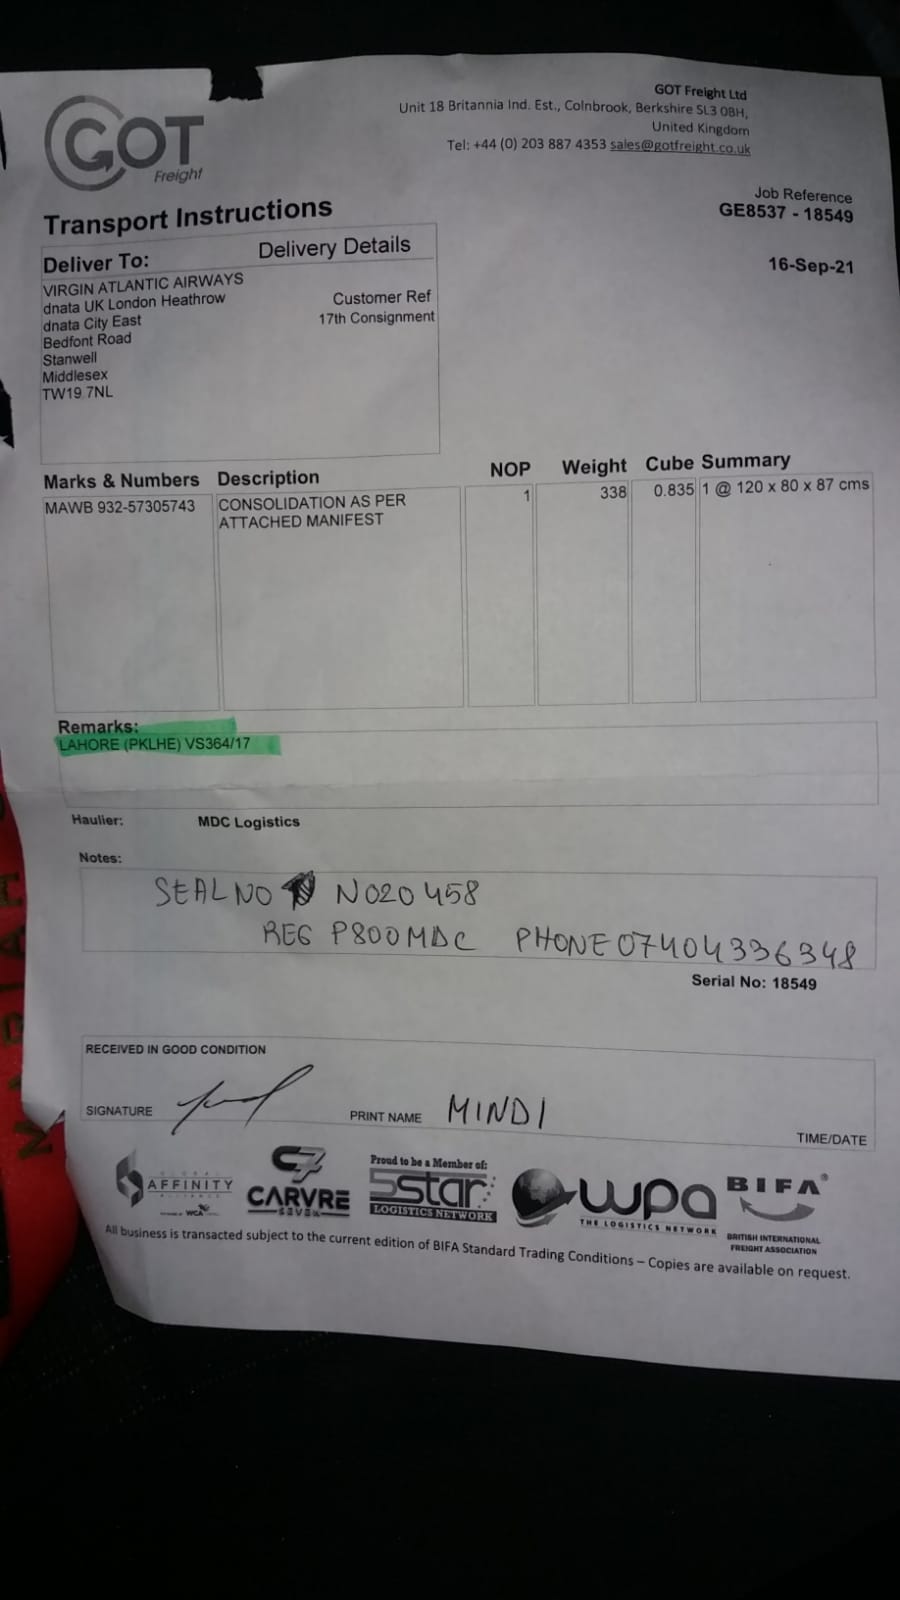 GOT
Freight
GOT Freight Ltd
Unit 18 Britannia Ind. Est., Colnbrook, Berkshire SL3 0BH,
United Kingdom
Tel: +44 (0) 203 887 4353 sales@gotfreight.co.uk
Job Reference
GE8537 - 18549
16-Sep-21
Transport Instructions
Deliver To: Delivery Details
VIRGIN ATLANTIC AIRWAYS
dnata UK London Heathrow
dnata City East
Bedfont Road
Stanwell
Middlesex
TW19 7NL
Customer Ref
17th Consignment
Marks & Numbers Description NOP Weight Cube Summary
MAWB 932-57305743 CONSOLIDATION AS PER 1 338 0.835 1 @ 120 x 80 x 87 cms
ATTACHED MANIFEST
Remarks:
LAHORE (PKLHE) VS364/17
Haulier: MDC Logistics
Notes:
SEAL NO N020458
REG P800MDC PHONE 07404336348
Serial No: 18549
RECEIVED IN GOOD CONDITION
SIGNATURE PRINT NAME MINDI
TIME/DATE
GLOBAL
AFFINITY
ALLIANCE
WCA
C7
CARVRE
SEVEN
Proud to be a Member of:
5star
LOGISTICS NETWORK
wpa
THE LOGISTICS NETWORK
BIFA®
BRITISH INTERNATIONAL
FREIGHT ASSOCIATION
All business is transacted subject to the current edition of BIFA Standard Trading Conditions – Copies are available on request.